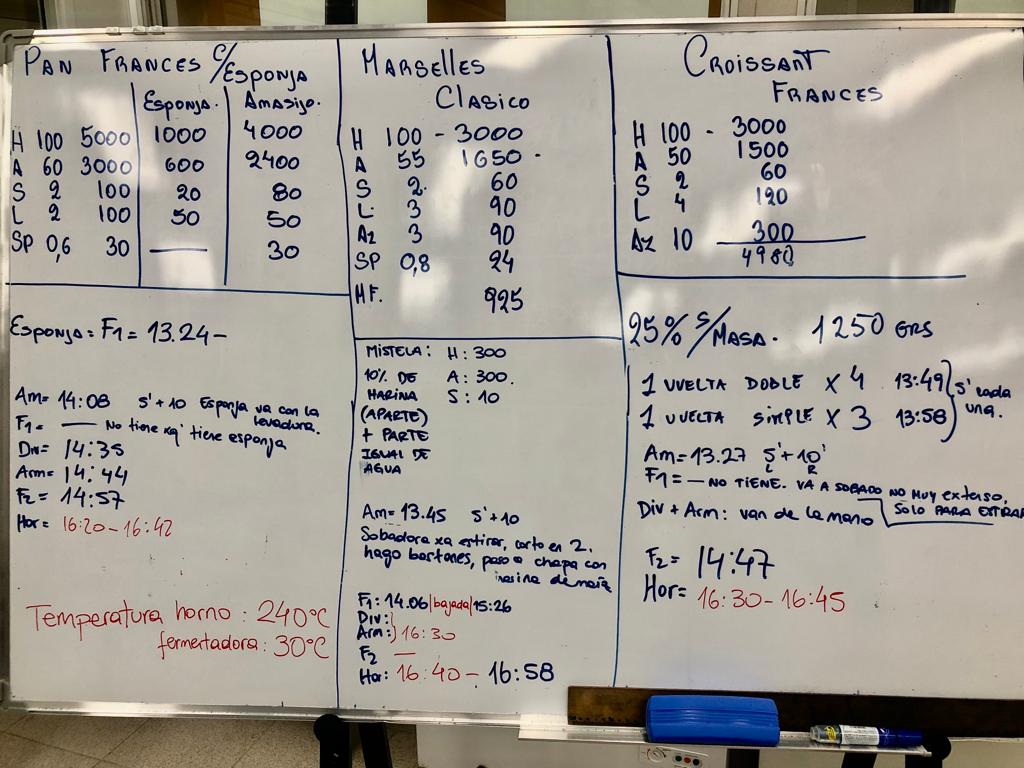 PAN FRANCES C/ESPONJA
ESPONJA. AMASIJO.
H 100 5000 1000 4000
A 60 3000 600 2400
S 2 100 20 80
L 2 100 50 50
SP 0,6 30 — 30
ESPONJA = F1 = 13.24 -
Am = 14:08 5'+10 Esponja va con la levadura.
F1 = — No tiene xq' tiene esponja
Div = 14:35
Arm = 14:44
F2 = 14:57
Hor = 16:20 - 16:42
Temperatura horno : 240°C
fermentadora : 30°C
MARSELLES
CLASICO
H 100 - 3000
A 55 1650 .
S 2. 60
L 3 90
Az 3 90
SP 0,8 24
MF. 925
MISTELA : H : 300
10% DE A : 300.
HARINA S : 10
(APARTE)
+ PARTE
IGUAL DE
AGUA
Am = 13.45 5'+10
Sobadora xa estirar, corto en 2.
hago bastones, paso a chapa con
harina de maíz
F1 : 14.06 |bajada| 15:26
Div :
Arm : } 16:30
F2 —
Hor : 16:40 - 16:58
CROISSANT
FRANCES
H 100 - 3000
A 50 1500
S 2 60
L 4 120
Az 10 300
4980
25% S/MASA. 1250 GRS
1 VUELTA DOBLE X 4 13:49 } 5' cada
1 VUELTA SIMPLE X 3 13:58 una.
Am = 13.27 5'+10'
L R
F1 = — NO TIENE. VA A SOBADO NO MUY extenso,
SOLO PARA ESTIRAR
Div + Arm : van de la mano
F2 = 14:47
Hor = 16:30 - 16:45